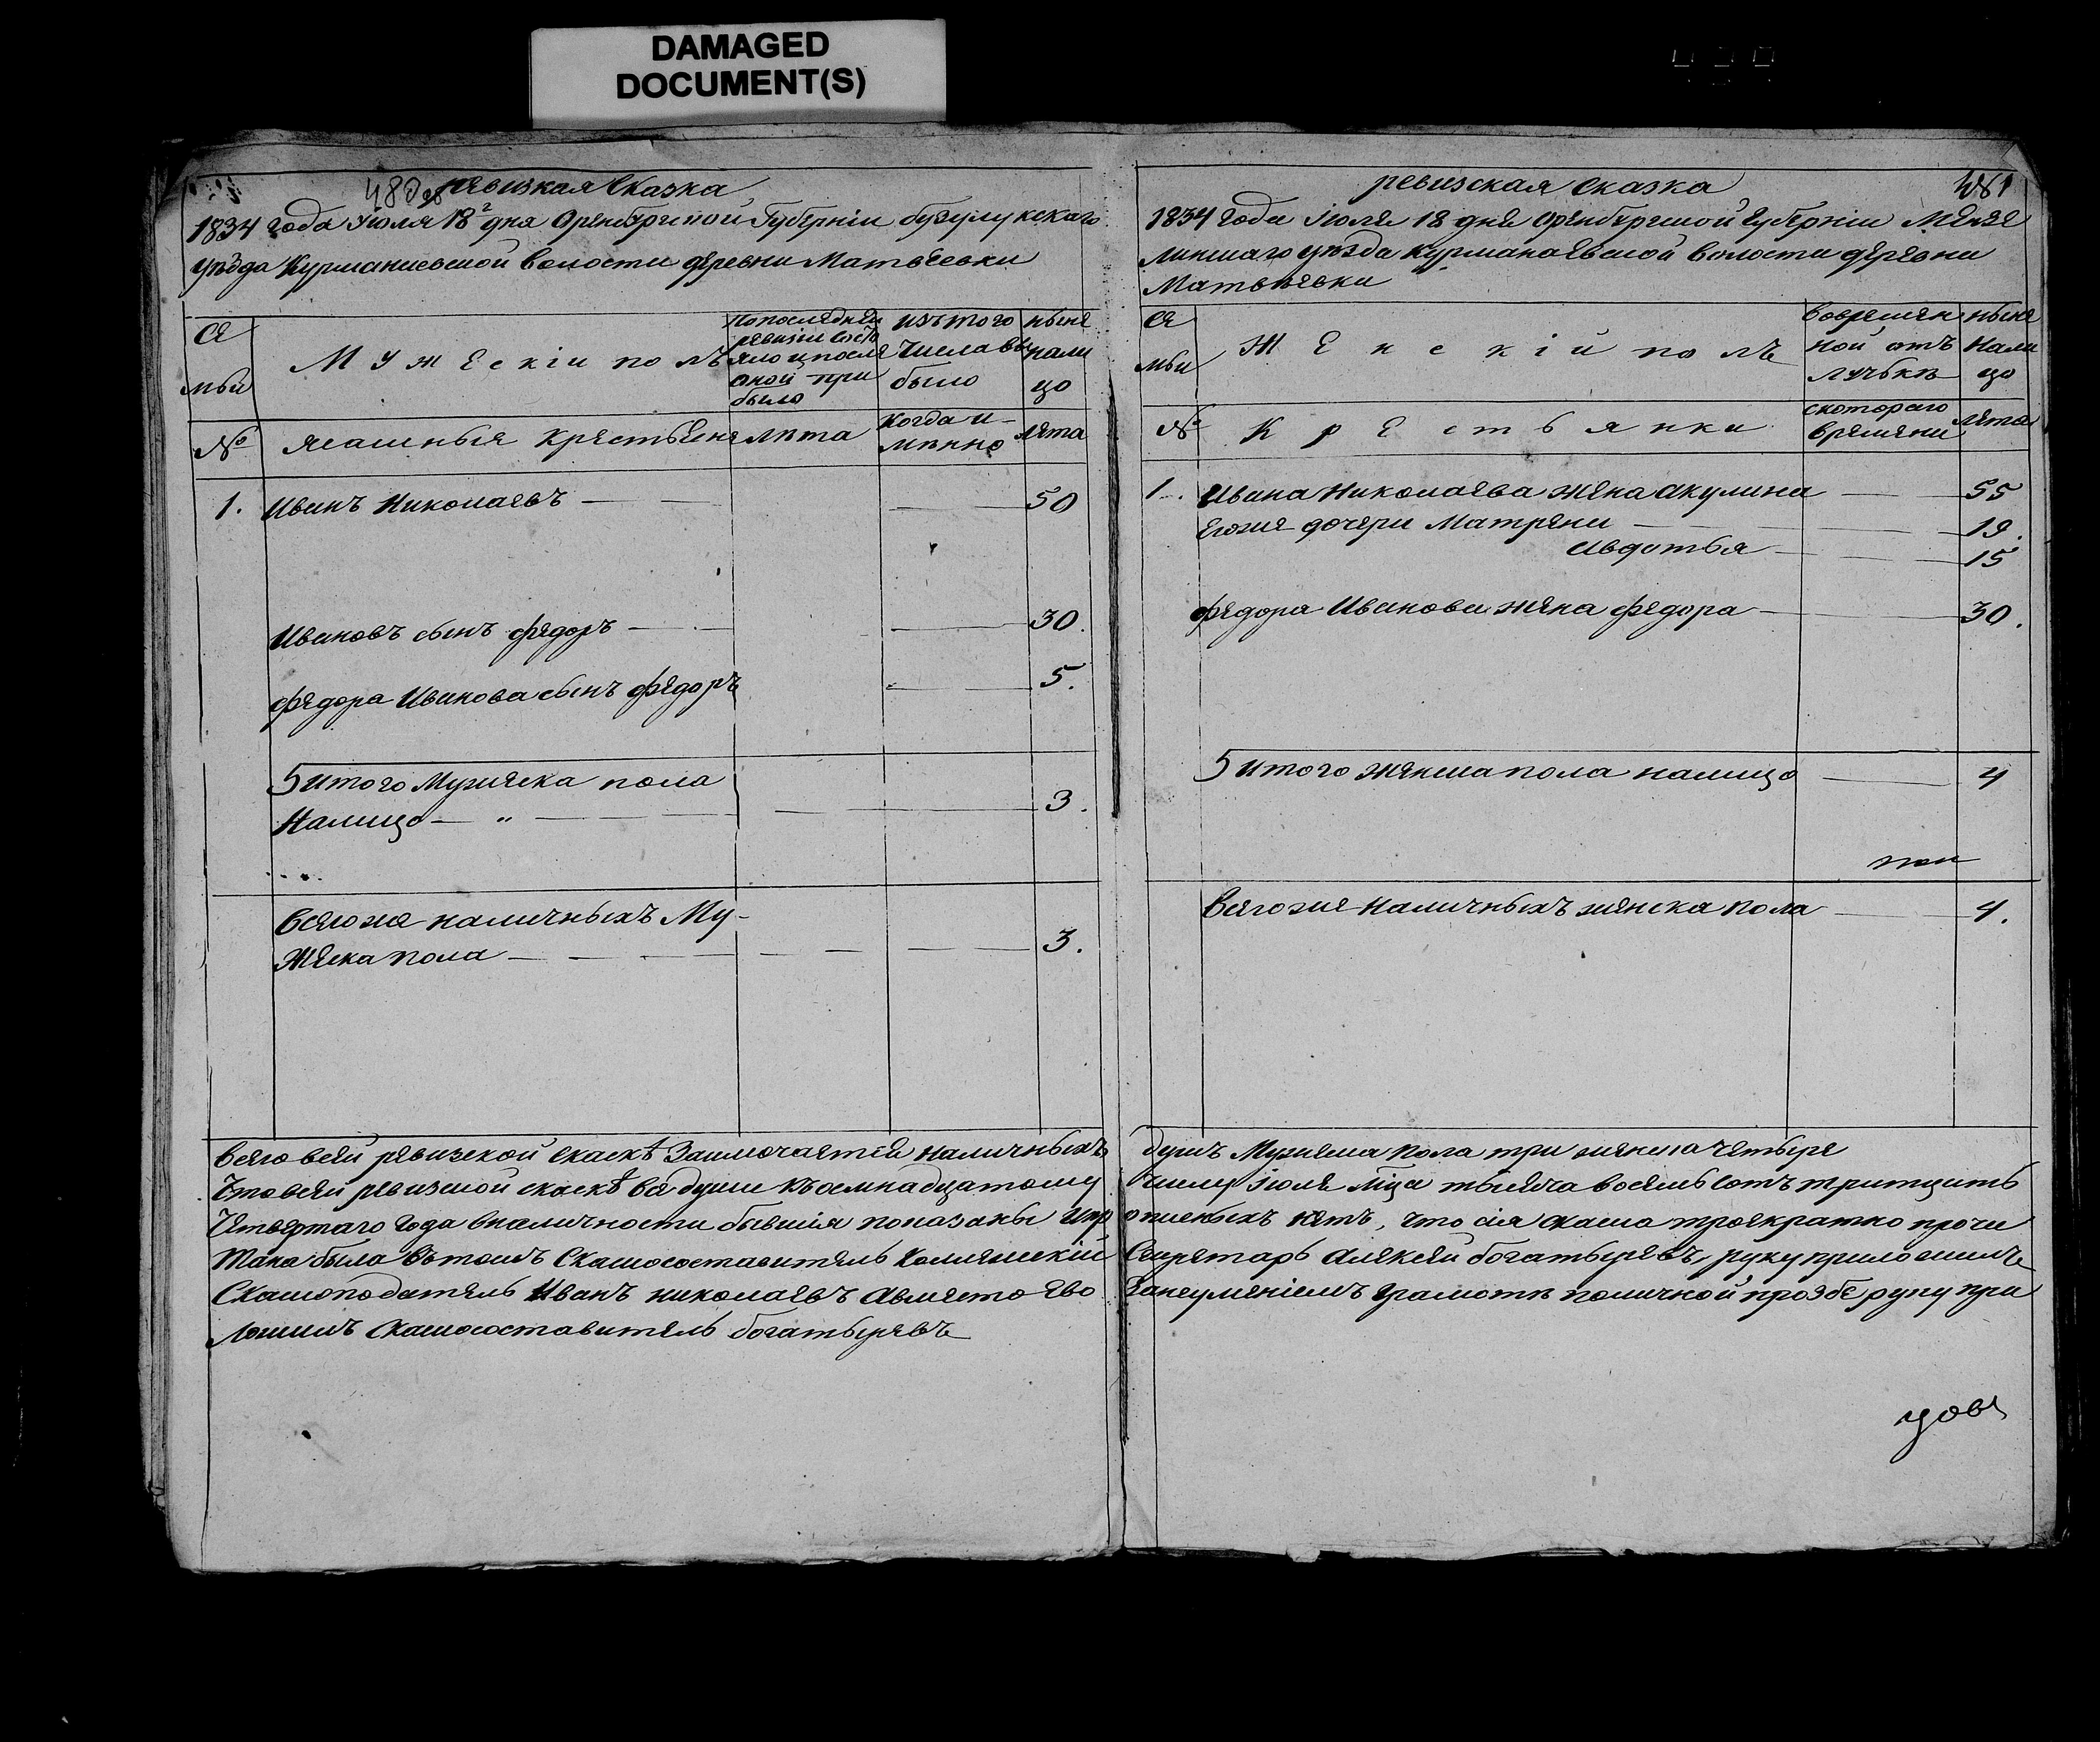 DAMAGED
DOCUMENT(S)
480
ревизкая Сказка
1834 года Июля 18 дня Оренбургской Губернiи бугулукскаго
уѣзда Курманаевской волости деревни Матвеевки
Се
мьи
Мужескiи полъ
По последней
ревизiи состо
яло и после
оной при
было
изътого
числа вы
было
ныне
нали
цо
№
ясашныя крестьеня
лѣта
когда и
мѣнно
лета
1. Иванъ Николаевъ 50
Ивановъ сынъ федоръ 30.
федора Иванова сынъ федоръ 5.
итого Мужеска пола
Налицо 3.
Всегоже наличныхъ Му-
жеска пола 3.
Всего всей ревизской скаскѣ Заключается наличныхъ
Что всей ревизской скаскѣ все души къ осмнадцатому
Четвертаго года вналичности бывшiя показаны ипр
тана была вътомъ Скаскосоставитель Коллежскiй
Скаскоподатель Иванъ николаевъ авместо ево
ложилъ скаскосоставитель богатыревъ
481
ревизская сказка
1834 года Iюля 18 дня оренбургской губернiи Мензе
линскаго уѣзда курманаевской волости деревни
Матвѣевки
Се
мьи
Женскiй полъ
вовремян
ной отъ
лучькѣ
ныне
Нали
цо
№
Крестьянки
скотораго
времяни
лета
1. Ивана Николаева жена акулина 55
Егоже дочери Матрена 19.
Авдотья 15
федора Иванова жена федора 30.
итого женска пола налицо 4
Всегоже Наличныхъ женска пола 4.
душъ Мужеска пола три женска четыре
числу iюля мца тысяча восемь сотъ тритцать
описныхъ нетъ, что сiя скаска троекратно прочи
Секретарь алексей богатыревъ, руку приложилъ
Занеуменiемъ грамотѣ поличной прозбе руку при